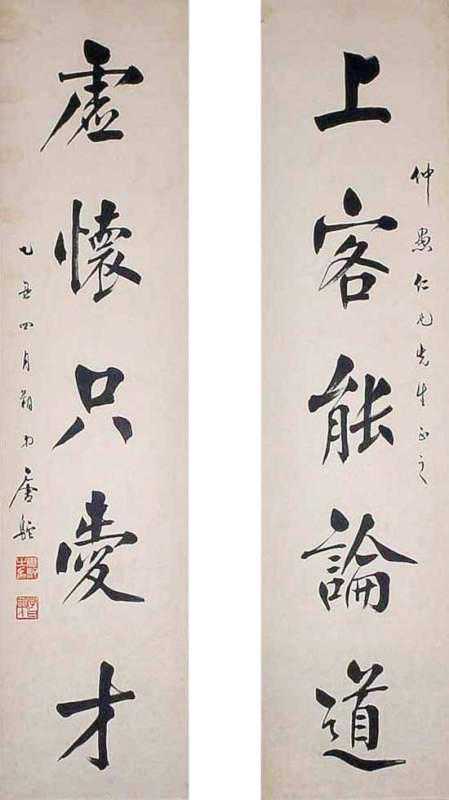 上客能論道
仲愚仁兄先生正之
虛懷只愛才
乙丑四月朔日弟唐駝